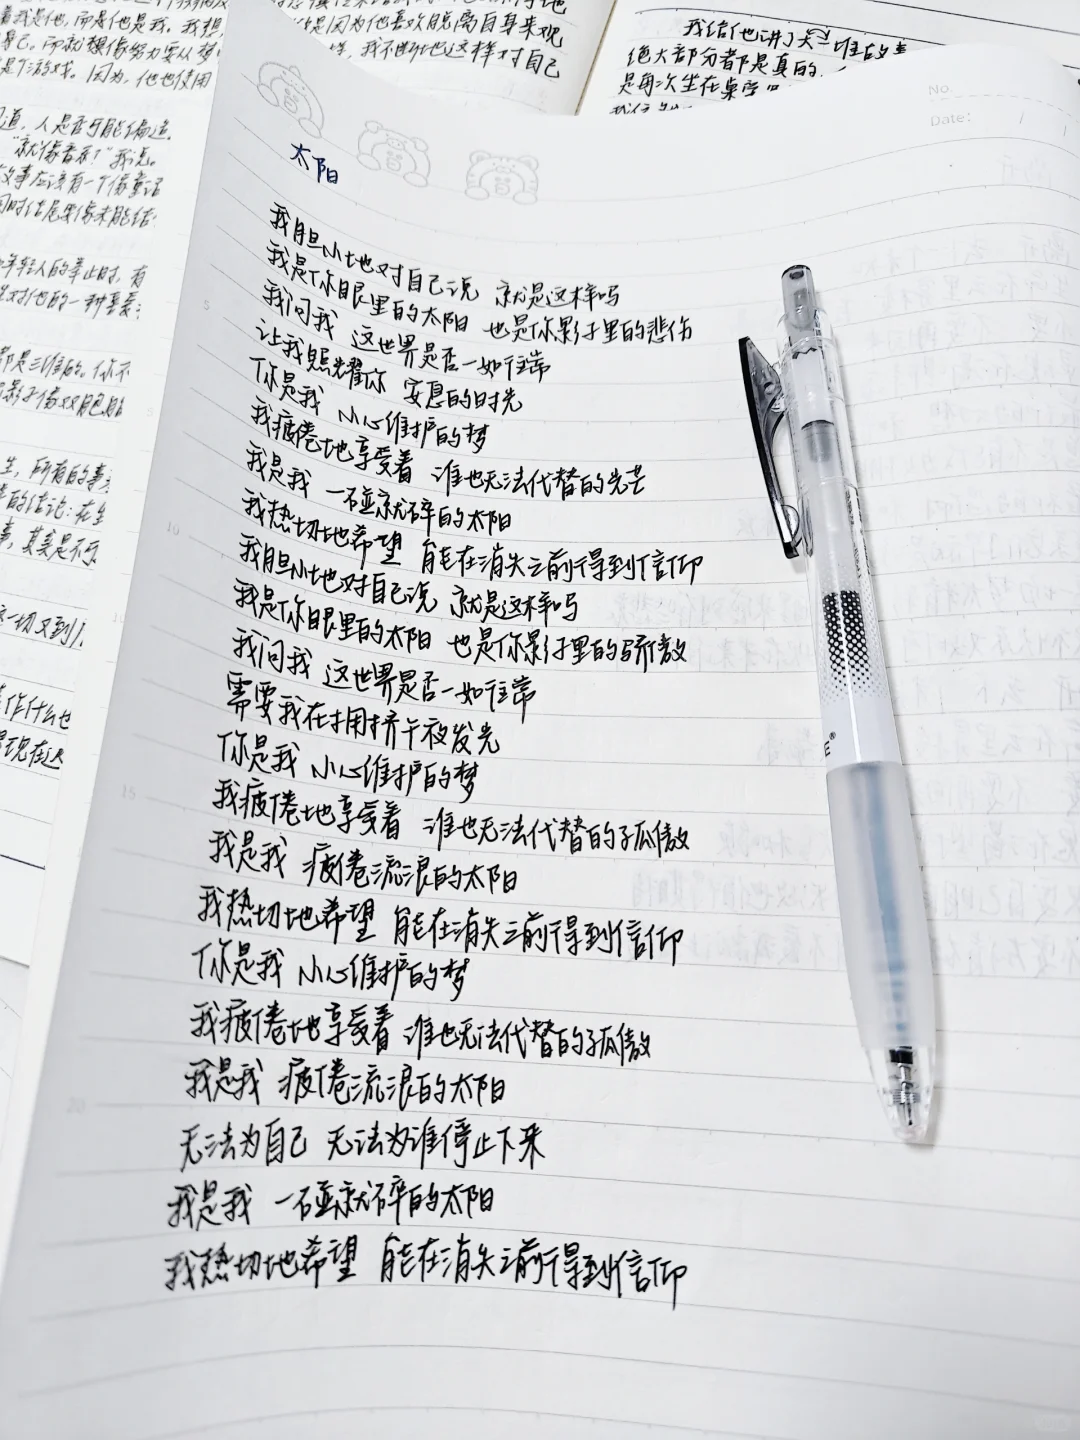 着我是他，而是他是我。我想，
是个游戏。因为，他也使用
是因为他喜欢脱离自身来观
我不断地这样对自己
我给他讲了
绝大部分都是真的，
是每次坐在桌旁
道，人是否可能偏造。
"就像香", 我说。
故事应该有一个像童话
同时结尾要像未能结
年轻人的举止时，有
对他的一种
都是三维的。你不
生，所有的事
的结论：在
事，其实是不
一切又到了
作什么也
现在这
No.
Date:
太阳
5
我胆小地对自己说 就是这样吗
我是你眼里的太阳 也是你影子里的悲伤
我问我 这世界是否一如往常
让我照耀你 安息的时光
你是我 小心维护的梦
我疲倦地享受着 谁也无法代替的光芒
我是我 一碰就碎的太阳
10
我热切地希望 能在消失之前得到信仰
我胆小地对自己说 就是这样吗
我是你眼里的太阳 也是你影子里的骄傲
我问我 这世界是否一如往常
需要我在拥挤午夜发光
你是我 小心维护的梦
15
我疲倦地享受着 谁也无法代替的孤傲
我是我 疲倦流浪的太阳
我热切地希望 能在消失之前得到信仰
你是我 小心维护的梦
我疲倦地享受着 谁也无法代替的孤傲
我是我 疲倦流浪的太阳
20
无法为自己 无法为谁停止下来
我是我 一碰就碎的太阳
我热切地希望 能在消失之前得到信仰